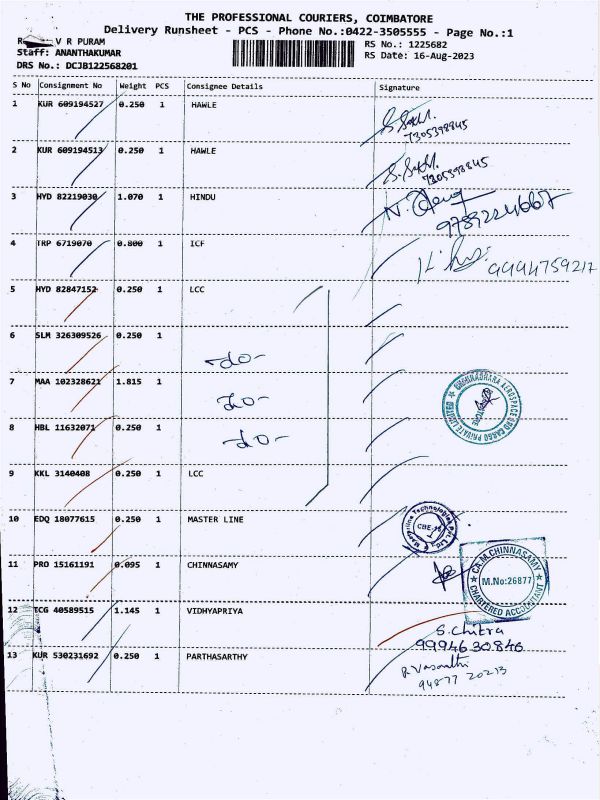 THE PROFESSIONAL COURIERS, COIMBATORE
Delivery Runsheet - PCS - Phone No.:0422-3505555 - Page No.:1
V R PURAM
RS No.: 1225682
Staff: ANANTHAKUMAR
RS Date: 16-Aug-2023
DRS No.: DCJB122568201
S No Consignment No Weight PCS Consignee Details Signature
1 KUR 609194527 0.250 1 HAWLE
7305398845
2 KUR 609194513 0.250 1 HAWLE
7305398845
3 HYD 82219030 1.070 1 HINDU
9789224667
4 TRP 6719070 0.800 1 ICF
9994759217
5 HYD 82847152 0.250 1 LCC
6 SLM 326309526 0.250 1
-do-
7 MAA 102328621 1.815 1
-do-
8 HBL 11632071 0.250 1
-do-
9 KKL 3140408 0.250 1 LCC
10 EDQ 18077615 0.250 1 MASTER LINE
11 PRO 15161191 0.095 1 CHINNASAMY
CA.M.CHINNASAMY
M.No:26877
CHARTERED ACCOUNTANT
12 TCG 40589515 1.145 1 VIDHYAPRIYA
S. Chitra
9994630846
13 KUR 530231692 0.250 1 PARTHASARTHY
R Vasanthi
94877 20213